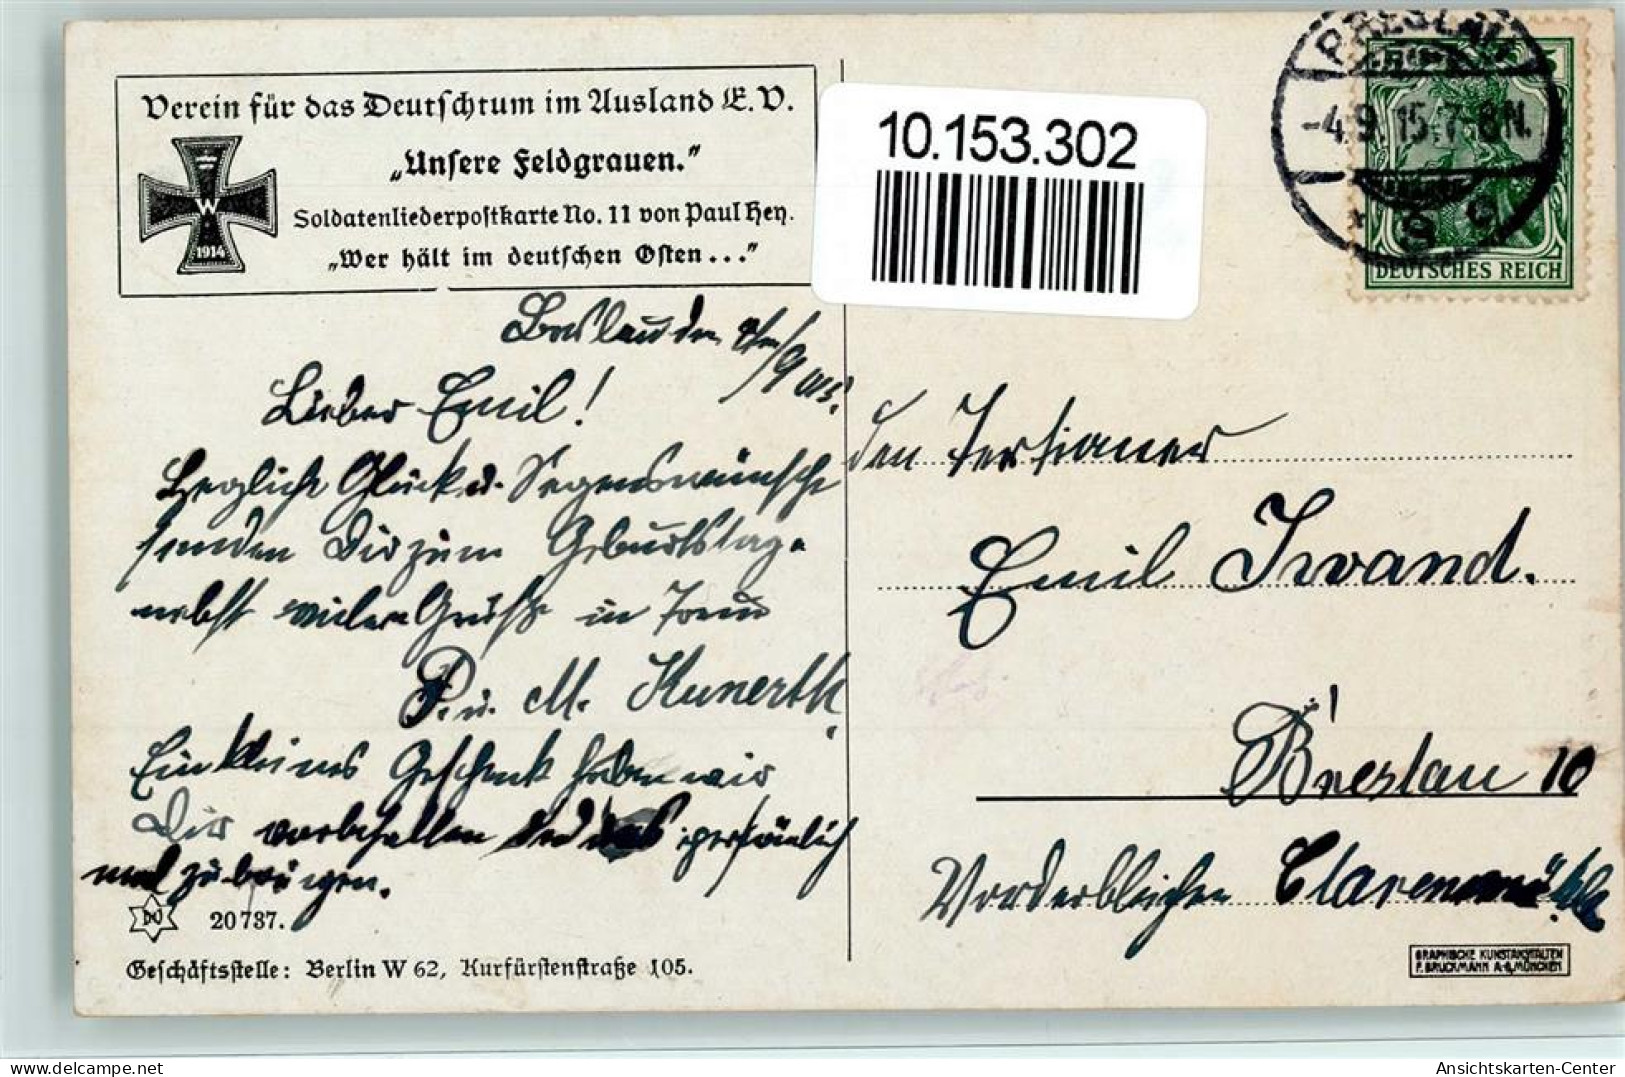 Verein für das Deutschtum im Ausland E.V.
„Unsere Feldgrauen.“
Soldatenliederpostkarte No. 11 von Paul Hey.
„Wer hält im deutschen Osten...“
W
1914
10.153.302
BRESLAU
-4.9.15.7-8N.
* 9 c
DEUTSCHES REICH
Breslau den 4ten/9 015.
Lieber Emil!
Herzliche Glück u. Segenswünsche
senden Dir zum Geburtstag
nebst vielen Grüße in Treue
P. u. M. Kunerth.
Ein kleines Geschenk haben wir
Dir vorbehalten persönlich
zu bringen.
den Tertianer
Emil Iwand.
Breslau 10
Vorderbleiche Clarenmühle
20737.
Geschäftsstelle: Berlin W 62, Kurfürstenstraße 105.
GRAPHISCHE KUNSTANSTALTEN
F. BRUCKMANN A.-G. MÜNCHEN
oldthing.de
AnsichtsKarten-Center